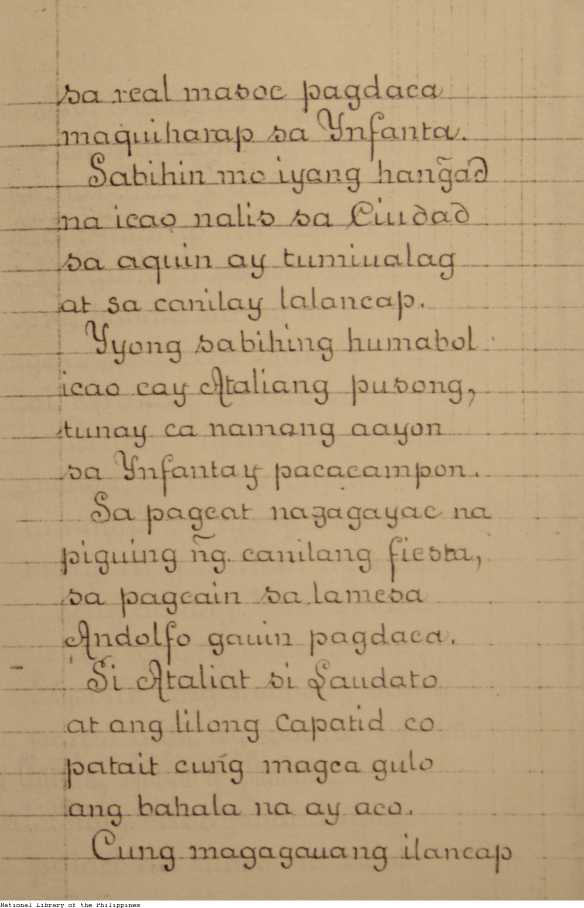 sa real masoc pagdaca
maquiharap sa Ynfanta.
Sabihin mo iyang hang̃ad
na icao nalis sa Ciudad
sa aquin ay tumiualag
at sa canilay lalancap.
Yyong sabihing humabol
icao cay Ataliang pusong,
tunay ca namang aayon
sa Ynfantay pacacampon.
Sa pagcat nagagayac na
piguing ñg. canilang fiesta,
sa pagcain sa lamesa
Andolfo gauin pagdaca.
Si Ataliat si Laudato
at ang lilong Capatid co
patait cuñg magca gulo
ang bahala na ay aco.
Cung magagauang ilancap
National Library of the Philippines